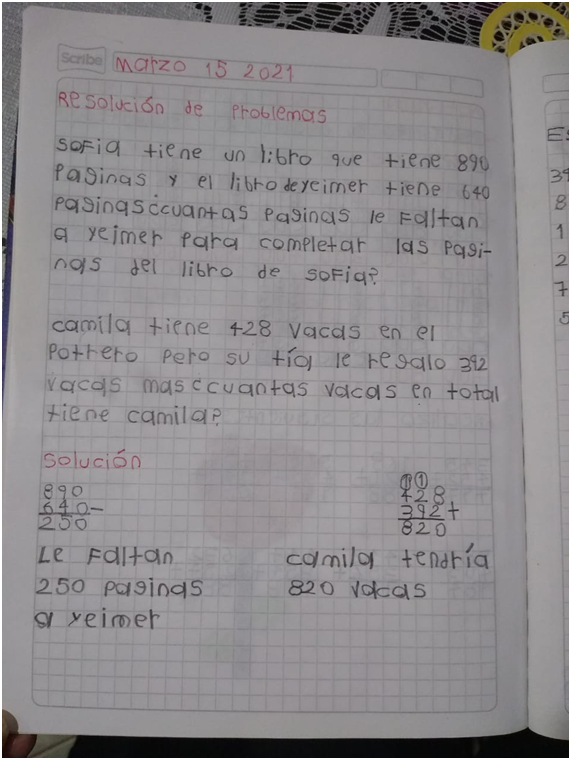 Scribe Marzo 15 2021
Resolución de Problemas
Sofia tiene un libro que tiene 890
Paginas y el libro de yeimer tiene 640
Paginas ¿cuantas Paginas le Faltan
a yeimer Para completar las Pagi-
nas del libro de Sofia?
camila tiene 428 Vacas en el
Potrero Pero su tía le regalo 392
vacas mas ¿cuantas vacas en total
tiene camila?
Solución
890
640-
250
Le Faltan
250 paginas
a yeimer
428
392+
820
camila tendría
820 vacas
E
39
8
1
2
7
5